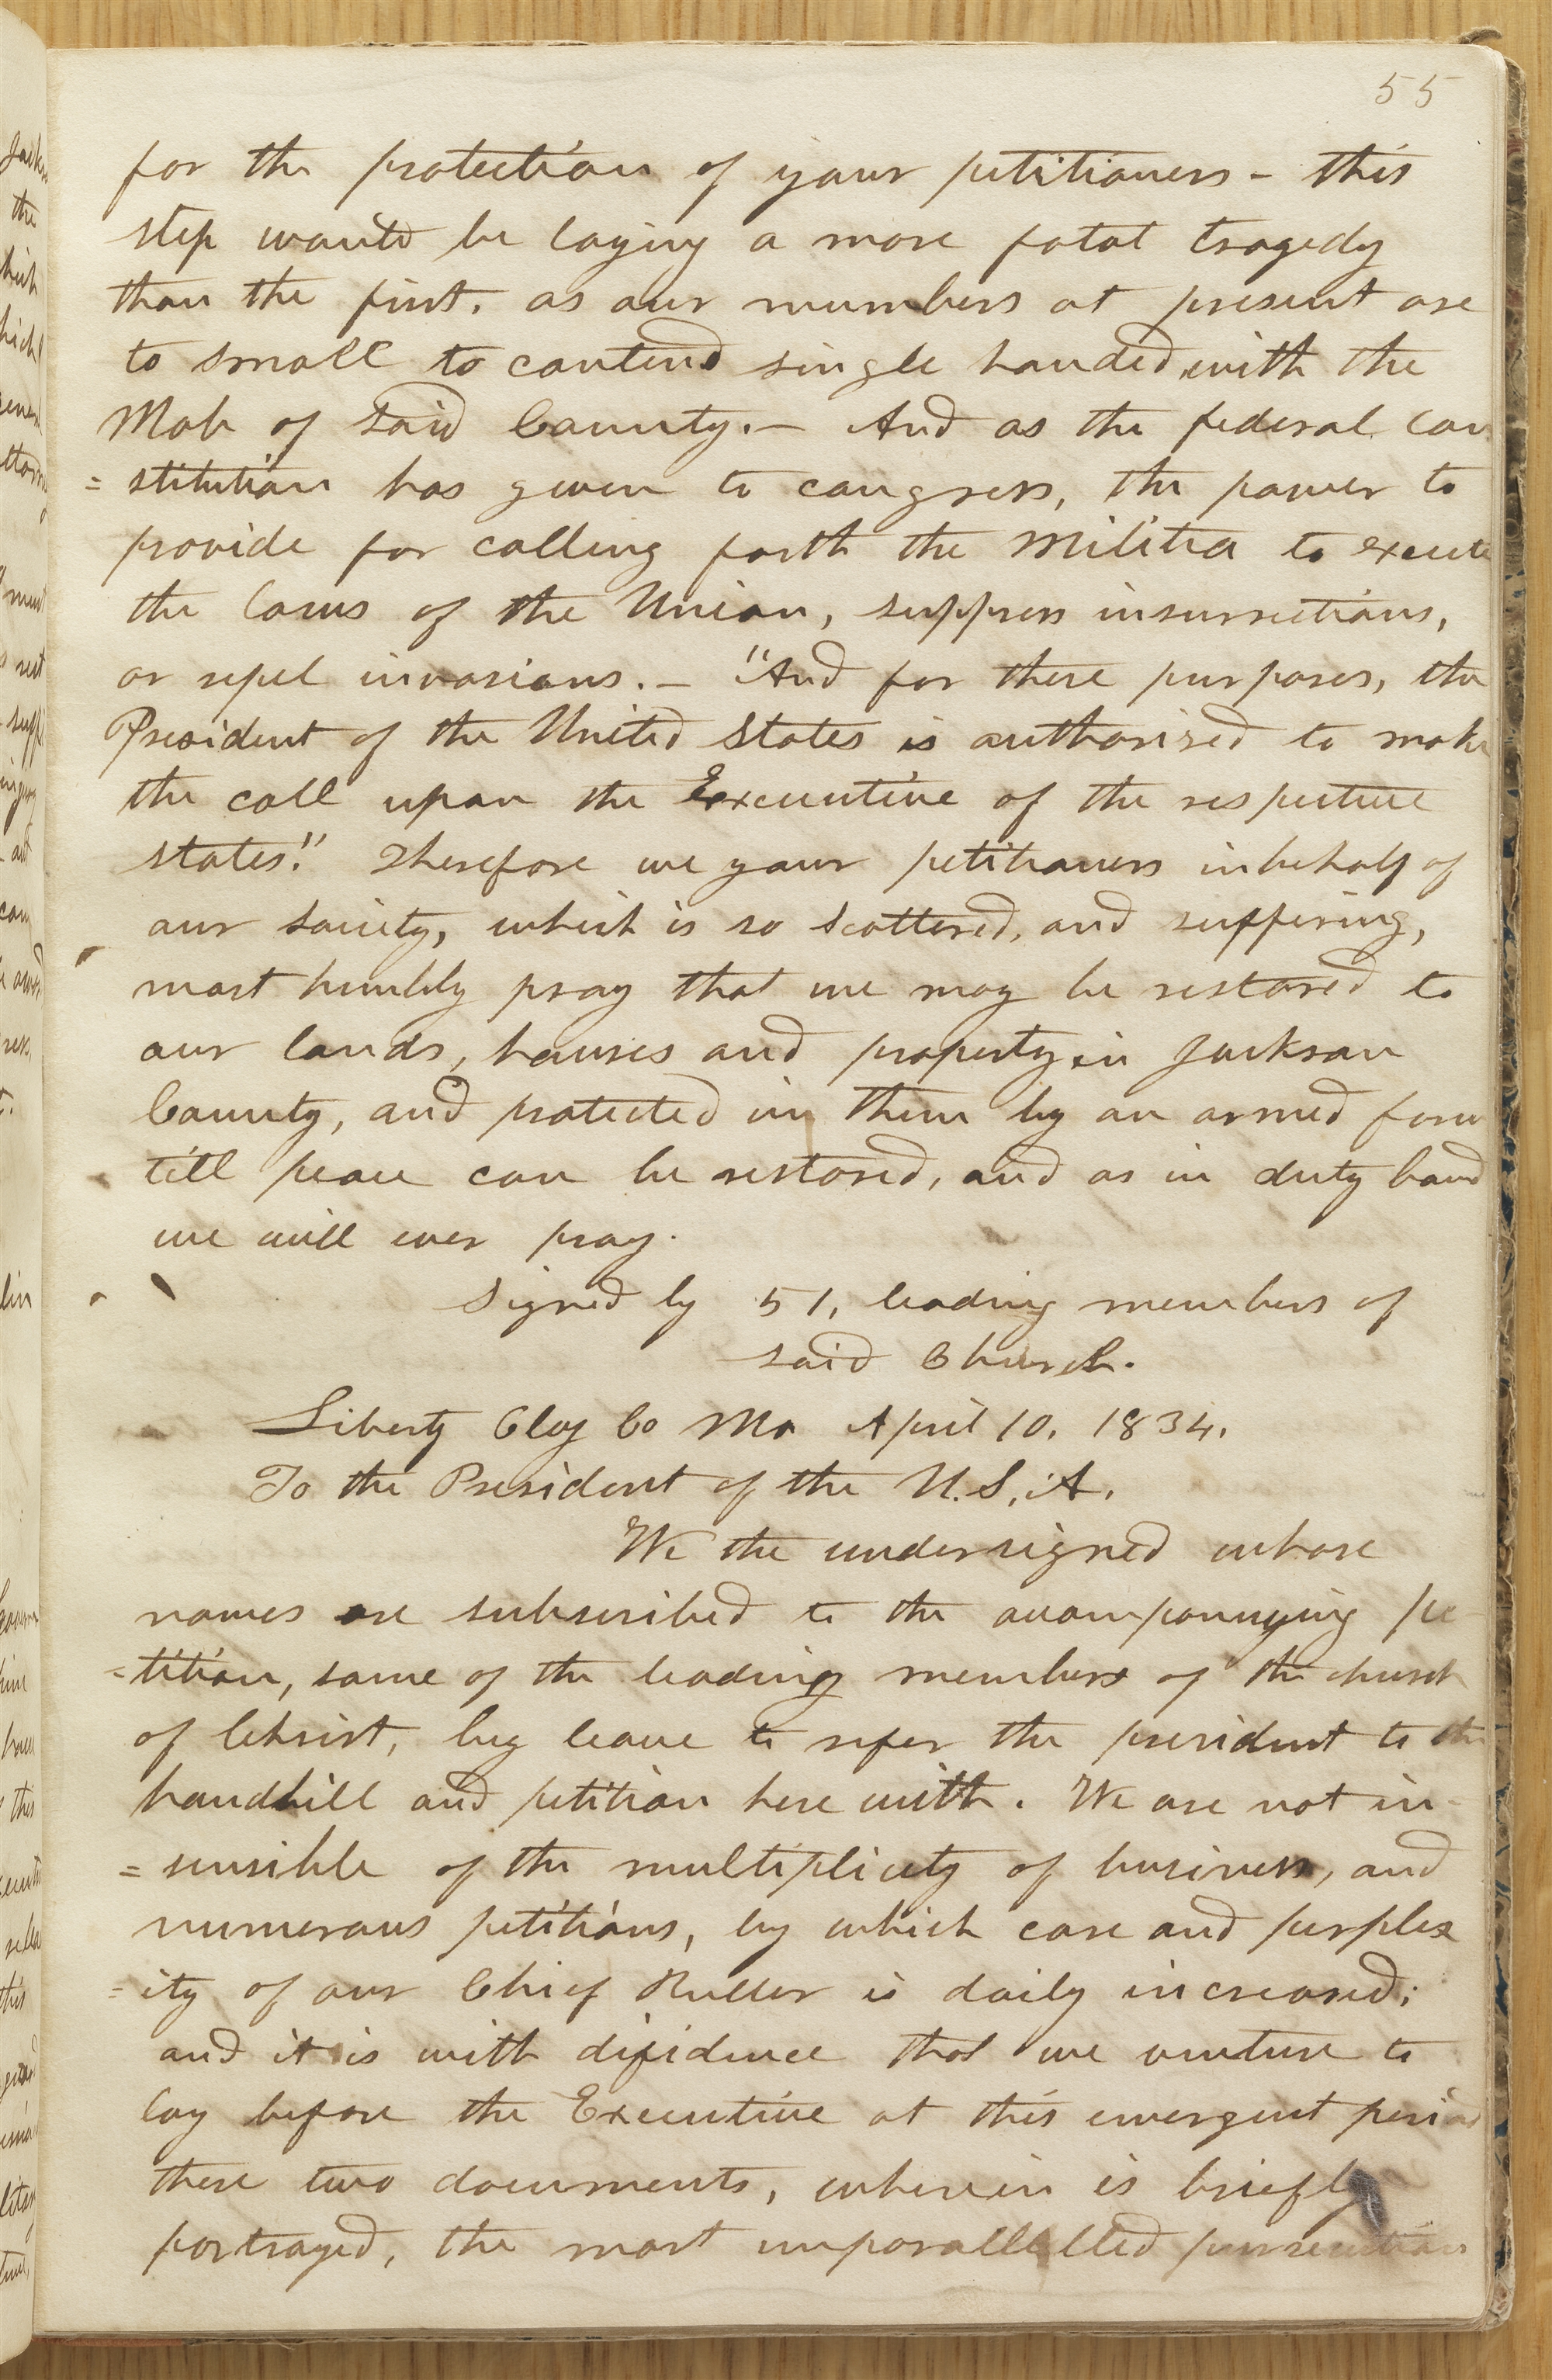 55
for the protection of your petitioners - this
step would be laying a more fatal tragedy
than the first, as our numbers at present are
to small to contend single handed with the
Mob of said County.— And as the federal con
= stitution has given to congress, the power to
provide for calling forth the militia to execute
the laws of the Union, suppress insurrections,
or repel invasions.— "And for these purposes, the
President of the United States is authorised to make
the call upon the Executive of the respective
states." Therefore we your petitioners in behalf of
our society, which is so scattered, and suffering,
most humbly pray that we may be restored to
our lands, houses and property in Jackson
County, and protected in them by an armed force
till peace can be restored, and as in duty bound
we will ever pray.
Signed by 51, leading members of
said Church.
Liberty Clay Co Mo April 10, 1834.
To the President of the U.S.A.
We the undersigned whose
names are subscribed to the accompanying pe
-tition, some of the leading members of the church
of Christ, beg leave to refer the president to the
handbill and petition here with. We are not in-
= sensible of the multiplicity of business, and
numerous petitions, by which care and perplex
=ity of our Chief Ruller is daily increased;
and it is with difidence that we venture to
lay before the Executive at this emergent period
these two documents, wherein is briefly
portrayed, the most unparallelled persecution